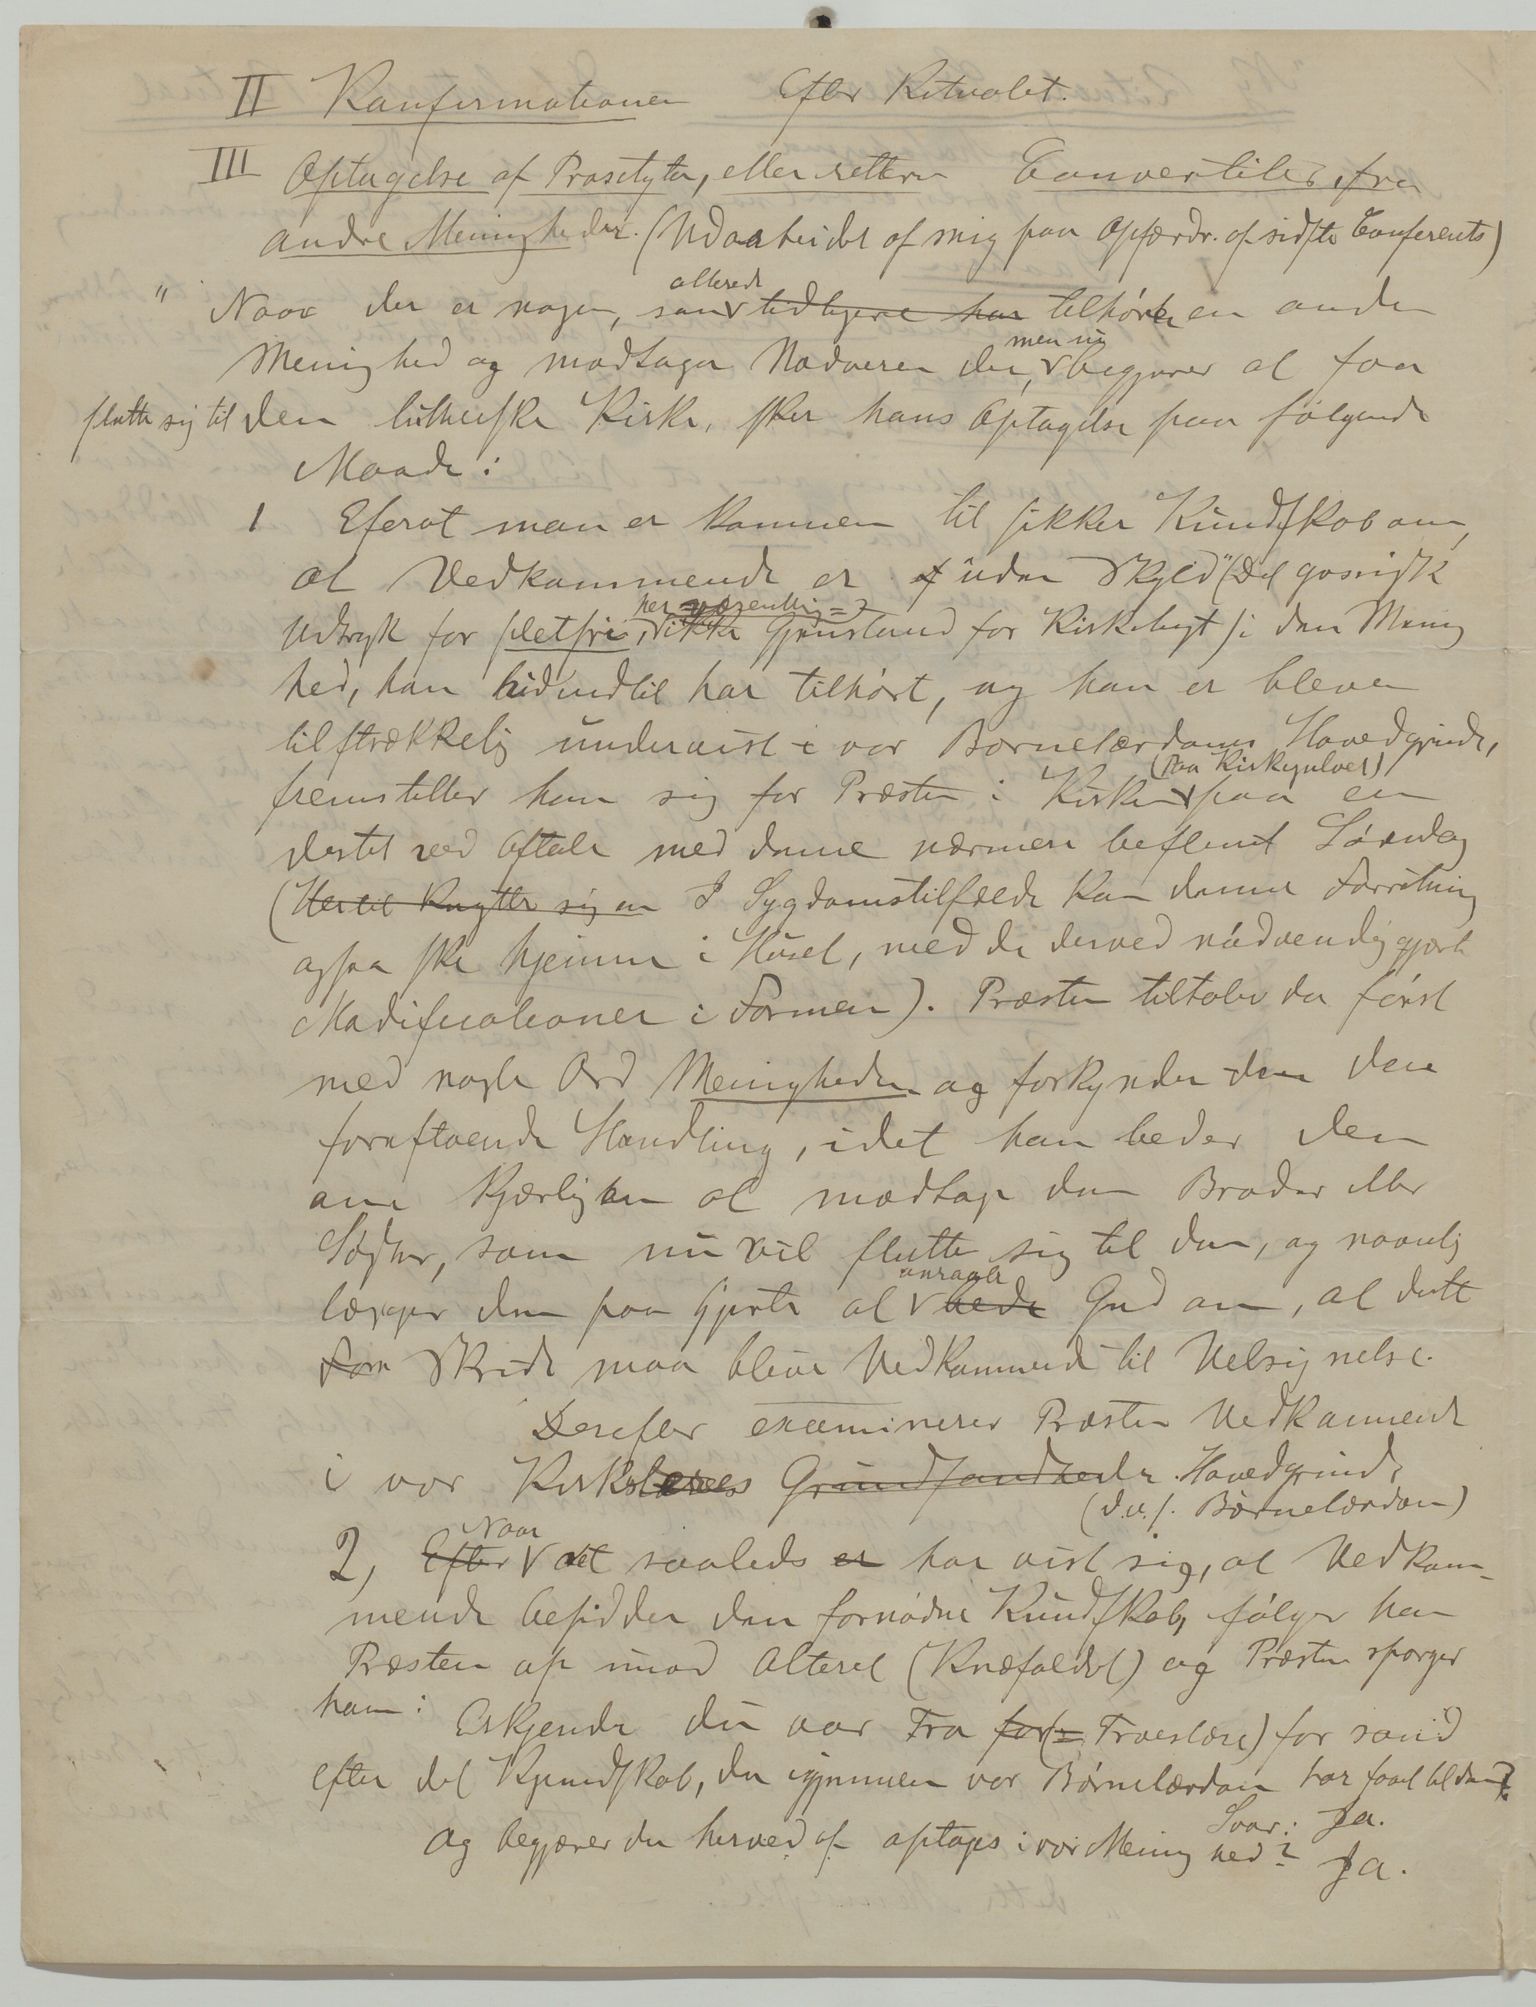 II Konfirmationen Efter Ritualet.
III Optagelse af Proselyter, eller rettere Convertiter, fra
andre Menigheder. (Udarbeidet af mig paa Opfordr. af sidste Conferents)
" Naar der er nogen, som allerede tidligere har tilhører en anden
Menighed og modtager Nadveren der, men nu begjærer at faa
slutte sig til den lutherske Kirke, sker hans Optagelse paa følgende
Maade:
1 Efterat man er kommen til sikker Kundskab om,
at Vedkommende er "uden Skyld" (Det gassisk
Udtryk for pletfri, her væsentlig = ikke Gjenstand for Kirketugt) i den Menig
hed, han hidindtil har tilhørt, og han er bleven
tilstrækkelig underviist i vor Børnelærdoms Hovedgrunde,
fremstiller han sig for Præsten i Kirken (paa Kirkegulvet) paa en
dertil ved Aftale med denne nærmere bestemt Søndag
(Hertil knytter sig en I Sygdomstilfælde kan denne Forretning
ogsaa ske hjemme i Huset, med de derved nødvendiggjorte
Modificationer i Formen). Præsten tiltaler da først
med nogle Ord Menigheden og forkynder dem den
forestaaende Handling, idet han beder den
om kjærligen at modtage den Broder eller
Søster, som nu vil slutte sig til dem, og navnlig
lægger dem paa Hjerte at anraabe bede Gud om, at dette
Skridt maa blive Vedkommende til Velsignelse.
Derefter examinerer Præsten Vedkommende
i vor Kirkes Grundsandheder Hovedgrunde
(d.v.s. Børnelærdom)
2, Efter Naar det saaledes er har vist sig, at Vedkom-
mende besidder den fornødne Kundskab, følger han
Præsten op imod Alteret (Knæfaldet) og Præsten spørger
ham: Erkjender du vor Tro for (= Troeslære) for sand
efter det Kjendskab, du igjennem vor Børnelærdom har faaet til den?
Svar: Ja.
Og begjærer du herved at optages i vor Menighed? Ja.